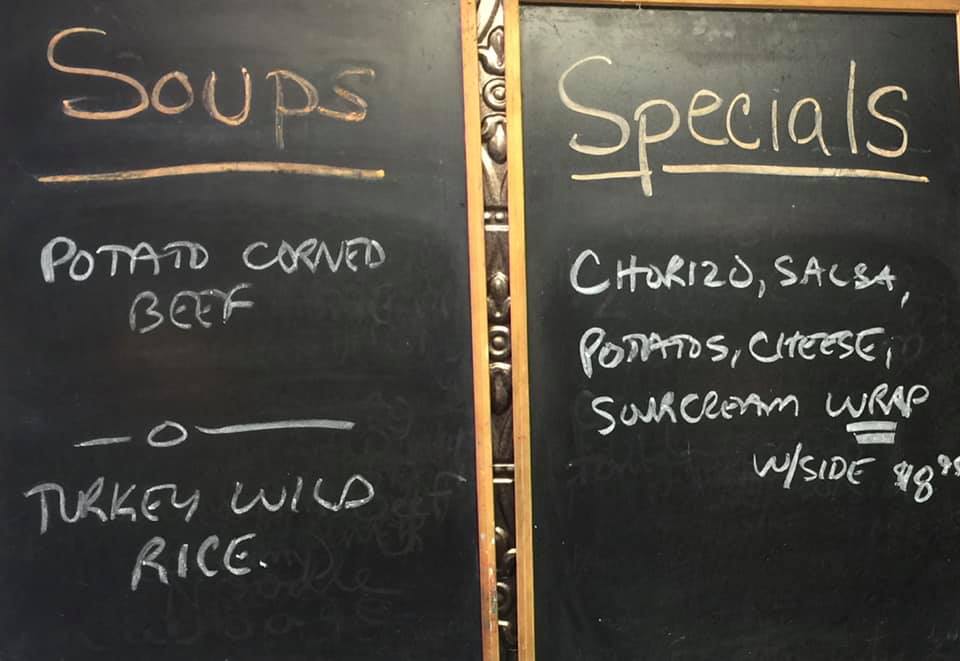 Soups
POTATO CORNED
BEEF
TURKEY WILD
RICE.
Specials
CHORIZO, SALSA,
POTATOS, CHEESE,
SOURCREAM WRAP
W/SIDE $8.95